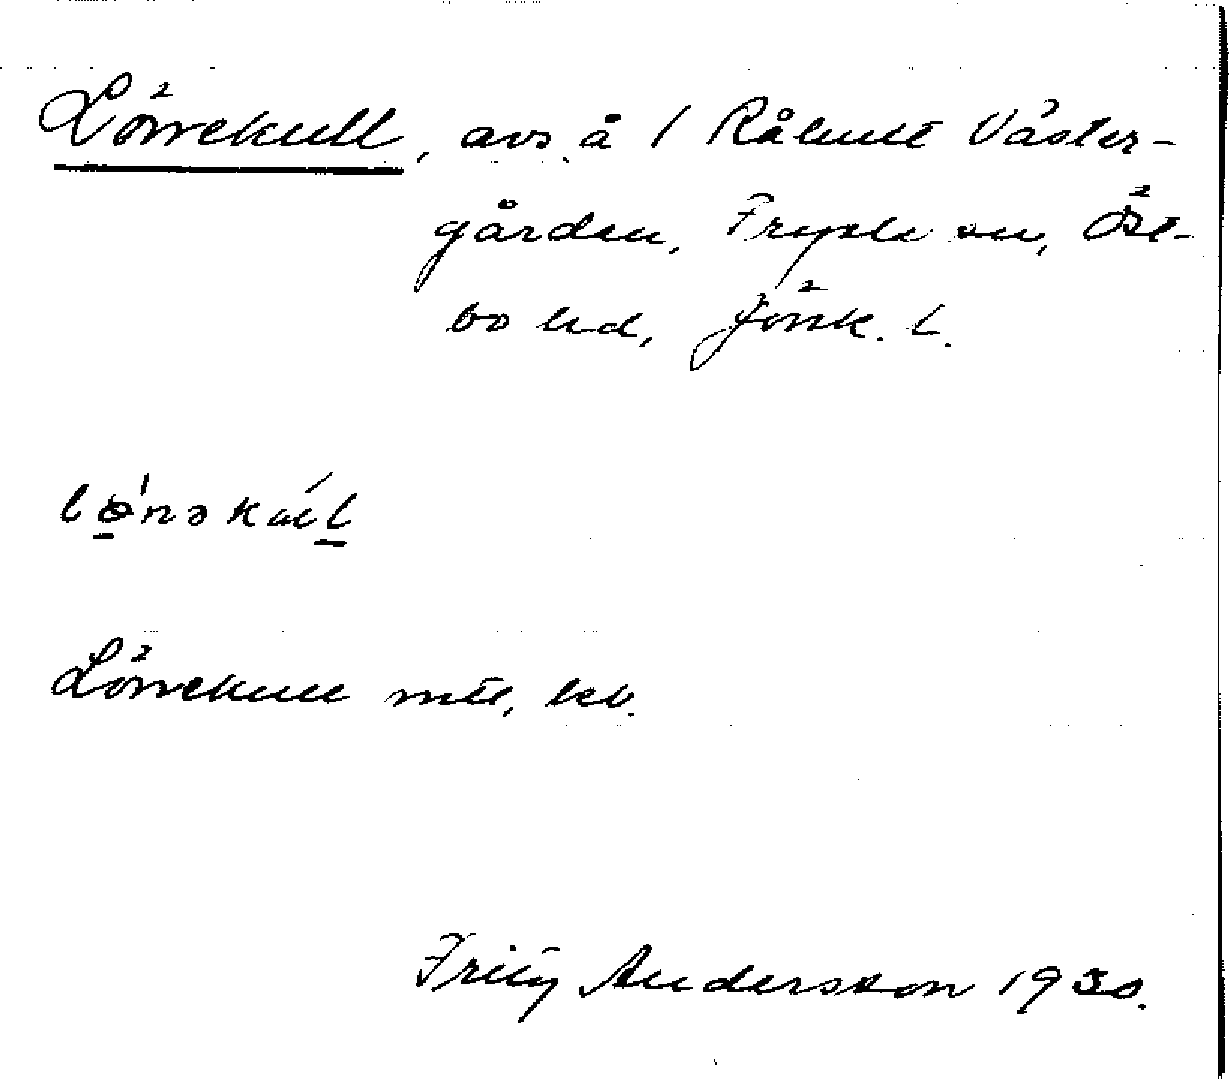 Lönnekull, avs. å 1 Råhult Väster-
gården, Fryele sn, Öst-
bo hd, Jönk. l.
Lönnekull mtl, kb.
Fritz Andersson 1930.